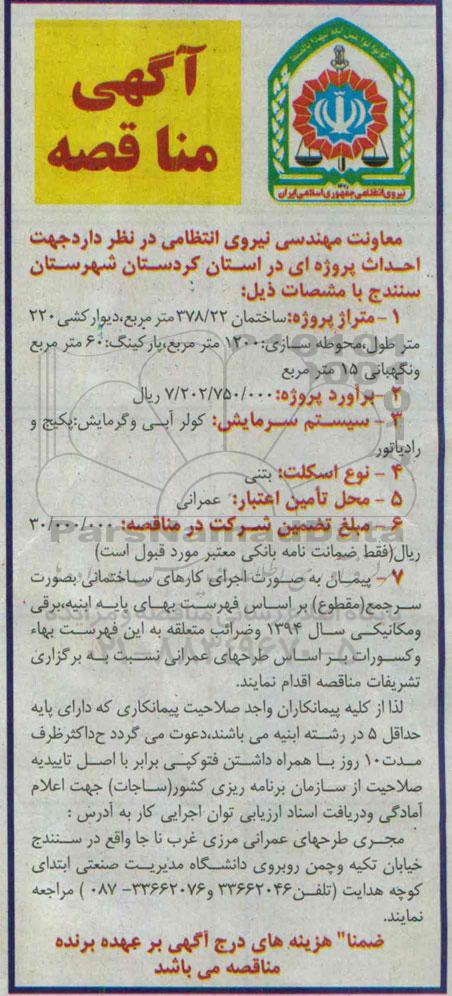 آگهی
مناقصه
نیروی انتظامی جمهوری اسلامی ایران
معاونت مهندسی نیروی انتظامی در نظر داردجهت
احداث پروژه ای در استان کردستان شهرستان
سنندج با مشصات ذیل:
۱- متراژ پروژه:ساختمان ۳۷۸/۲۲متر مربع،دیوارکشی ۲۲۰
متر طول،محوطه سازی:۱۲۰۰ متر مربع،پارکینگ:۶۰ متر مربع
ونگهبانی ۱۵ متر مربع
۲- برآورد پروژه:۷/۲۰۲/۷۵۰/۰۰۰ ریال
۳- سیستم سرمایش: کولر آبی وگرمایش:پکیج و
رادیاتور
۴- نوع اسکلت: بتنی
۵- محل تأمین اعتبار: عمرانی
۶- مبلغ تضمین شرکت در مناقصه: ۳۰/۰۰۰/۰۰۰
ریال(فقط ضمانت نامه بانکی معتبر مورد قبول است)
۷- پیمان به صورت اجرای کارهای ساختمانی بصورت
سرجمع(مقطوع) بر اساس فهرست بهای پایه ابنیه،برقی
ومکانیکی سال ۱۳۹۴ وضرائب متعلقه به این فهرست بهاء
وکسورات بر اساس طرحهای عمرانی نسبت به برگزاری
تشریفات مناقصه اقدام نمایند.
لذا از کلیه پیمانکاران واجد صلاحیت پیمانکاری که دارای پایه
حداقل ۵ در رشته ابنیه می باشند،دعوت می گردد حداکثرظرف
مدت۱۰ روز با همراه داشتن فتوکپی برابر با اصل تاییدیه
صلاحیت از سازمان برنامه ریزی کشور(ساجات) جهت اعلام
آمادگی ودریافت اسناد ارزیابی توان اجرایی کار به آدرس :
مجری طرحهای عمرانی مرزی غرب نا جا واقع در سنندج
خیابان تکیه وچمن روبروی دانشگاه مدیریت صنعتی ابتدای
کوچه هدایت (تلفن۳۳۶۶۲۰۴۶ و۳۳۶۶۲۰۷۶- ۰۸۷ ) مراجعه
نمایند.
ضمنا" هزینه های درج آگهی بر عهده برنده
مناقصه می باشد
ParsNamadData
۰۲۱-۸۸۳۴۹۶۷۰-۵